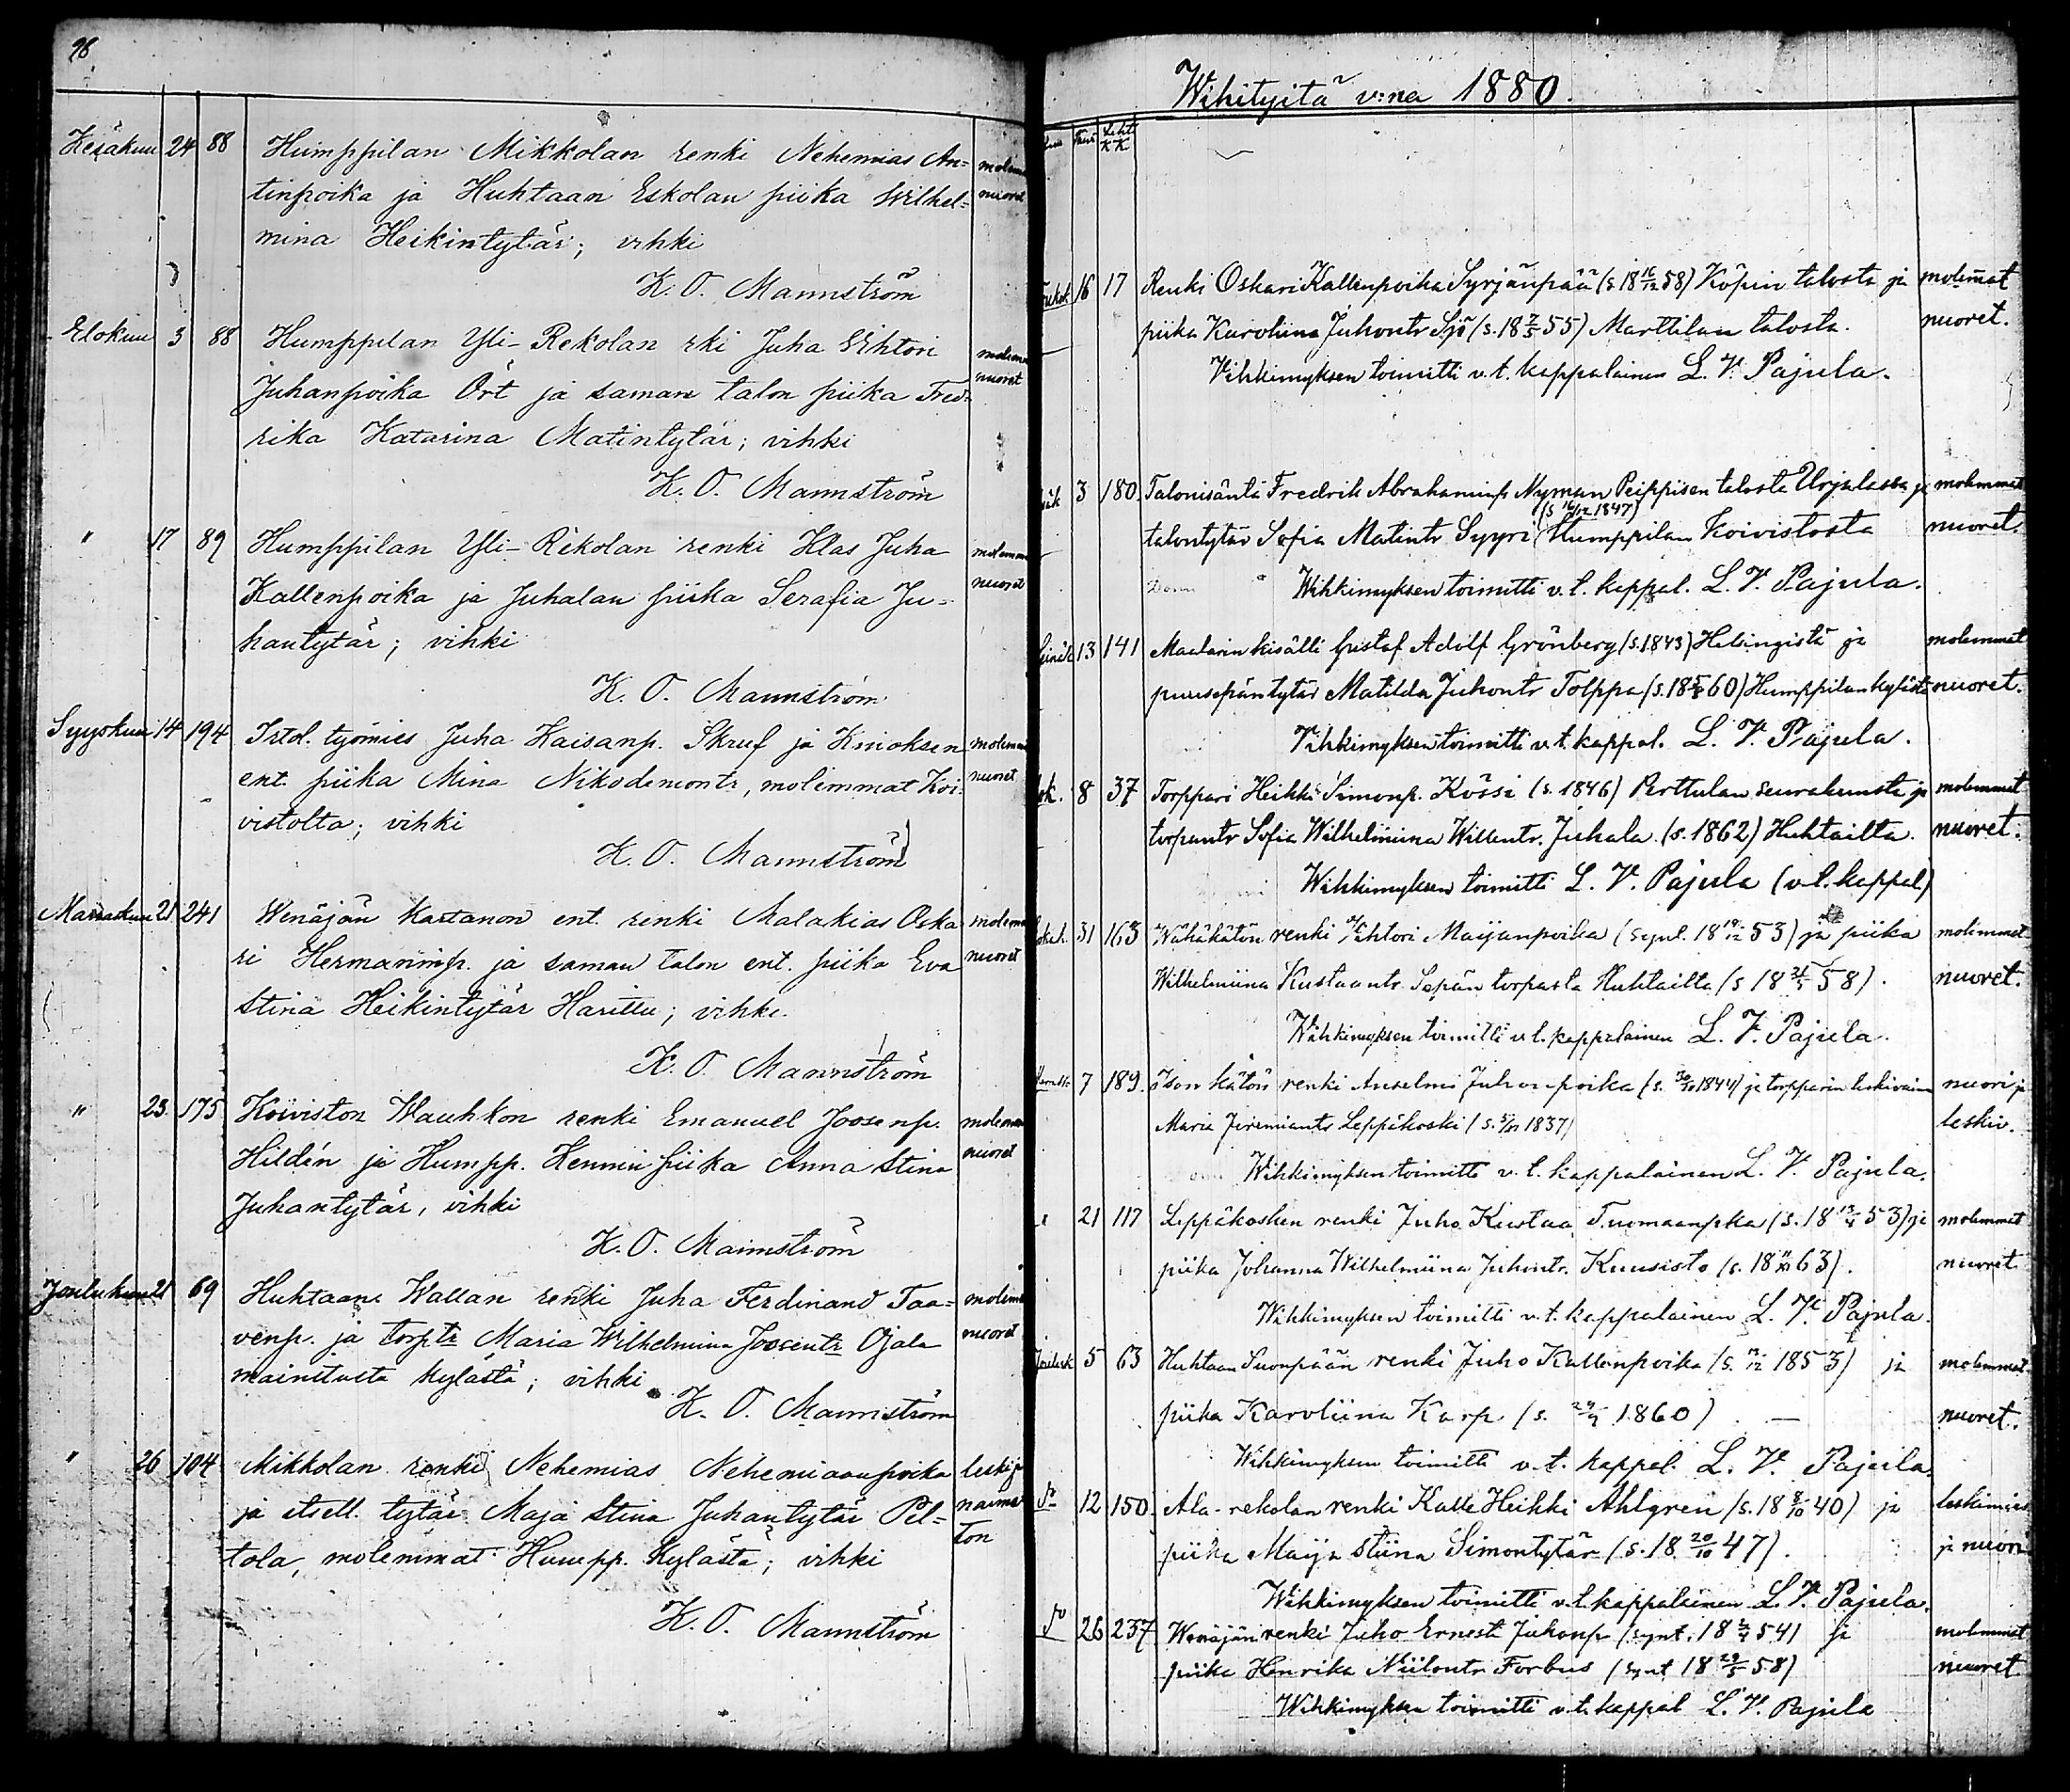 98.
Kesäkuu 24 88 Humppilan Mikkolan renki Nehemias An=
tinpoika ja Huhtaan Eskolan piika Wilhel=
nuoret
mina Heikintytär; vihki
K. O. Mannström
Elokuu 3 88 Humppilan Yli-Rekolan rki Juha Wihtori
nuoret
Juhanpoika Ört ja saman talon piika Fred=
rika Katarina Matintytär; vihki
K. O. Mannström
" 17 89 Humppilan Yli-Rekolan renki Klas Juha
Kallenpoika ja Juhalan piika Serafia Ju=
nuoret
hantytär; vihki
K. O. Mannström
Syyskuu 14 194 Irtol. työmies Juha Kaisanp. Skruf ja
ent. piika Mina Nikodemontr, molemmat Koi=
nuoret
vistolta; vihki
K. O. Mannström
Marraskuu 21 241 Wenäjän kartanon ent. renki Malakias Oska
ri Hermanninp. ja saman talon ent. piika Eva
nuoret
Stina Heikintytär Harittu; vihki
K. O. Mannström
" 23. 175 Koiviston Wauhkon renki Emanuel Joosenp.
Hildén ja Humpp. Hennin piika Anna Stina
nuoret
Juhantytär, vihki
K. O. Mannström
Joulukuu 21 69 Huhtaan Wallan renki Juha Ferdinand Taa=
venp. ja torptr Maria Wilhelmiina Joosentr Ojala
nuoret
mainitusta kylästä; vihki
K. O. Mannström
" 26 104 Mikkolan renki Nehemias Nehemiaanpoika leski ja
ja itsell. tytär Maja Stina Juhantytär Pel= naima
ton
tola, molemmat Humpp. Kylästä; vihki
K. O. Mannström
Wihityitä v:na 1880.
16 17 Renki Oskari Kallenpoika Syrjänpää (s. 18 16/12 58) Köpin talosta ja molemmat
piika Karoliina Juhontr Sjö (s. 18 7/5 55) Marttilan talosta. nuoret.
Vihkimyksen toimitti v.t. kappalainen L. V. Pajula.
3 180. Talonisäntä Fredrik Abrahaminp. Nyman Peippisen talosta Urjalassa ja molemmat
(s 16/12 1847)
talontytär Sofia Matintr Syyri Humppilan Koivistosta nuoret.
Wihkimyksen toimitti v.t. kappal. L. V. Pajula.
13 141 Maalarin kisälli Gustaf Adolf Grönberg (s. 1843) Helsingistä ja molemmat
puusepäntytär Matilda Juhontr Tolppa Humppilan kylästä nuoret.
Vihkimyksen toimitti v.t. kappal. L. V. Pajula.
8 37 Torppari Heikki Simonp. Kössi (s. 1846) Perttulan seurakunnasta ja molemmat
torpantr Sofia Wilhelmiina Willentr. Juhala (s. 1862) Huhtailta. nuoret.
Wihkimyksen toimitti L. V. Pajula (v.t. kappal.)
31 163 Wähäkätön renki Wihtori Maijanpoika (synt. 18 19/12 53) ja piika molemmat
Wilhelmiina Kustaantr. Sepän torpasta Huhtailta nuoret.
Wihkimyksen toimitti v.t. kappalainen L. V. Pajula.
7 189. Ison kätön renki Anselmi Juhonpoika ja torpparin leskivaimo nuori ja
Maria Jeremiantr Leppäkoski leskiv.
Wihkimyksen toimitti v.t. kappalainen L. V. Pajula.
21 117 Leppäkosken renki Juho Kustaa Tuomaanpka (s. 18 13/4 53) ja molemmat
piika Johanna Wilhelmiina Juhontr. Kuusisto nuoret.
Wihkimyksen toimitti v.t. kappalainen L. V. Pajula.
5 63 Huhtaan Suonpään renki Juho Kallenpoika ja molemmat
piika Karoliina Karp nuoret.
Wihkimyksen toimitti v.t. kappal. L. V. Pajula.
12 150. Ala-rekolan renki Kalle Heikki Ahlgren (s. 18 8/10 40) ja leskimies
piika Maija Stiina Simontytär (s. 18 20/10 47). ja nuori
Wihkimyksen toimitti v.t. kappalainen L. V. Pajula.
26 237 Wenäjän renki Juho Ernesti Juhonp. ja molemmat
piika Henrika Niilontr Forbus (synt 18 29/5 58) nuoret
Wihkimyksen toimitti v.t. kappal L. V. Pajula